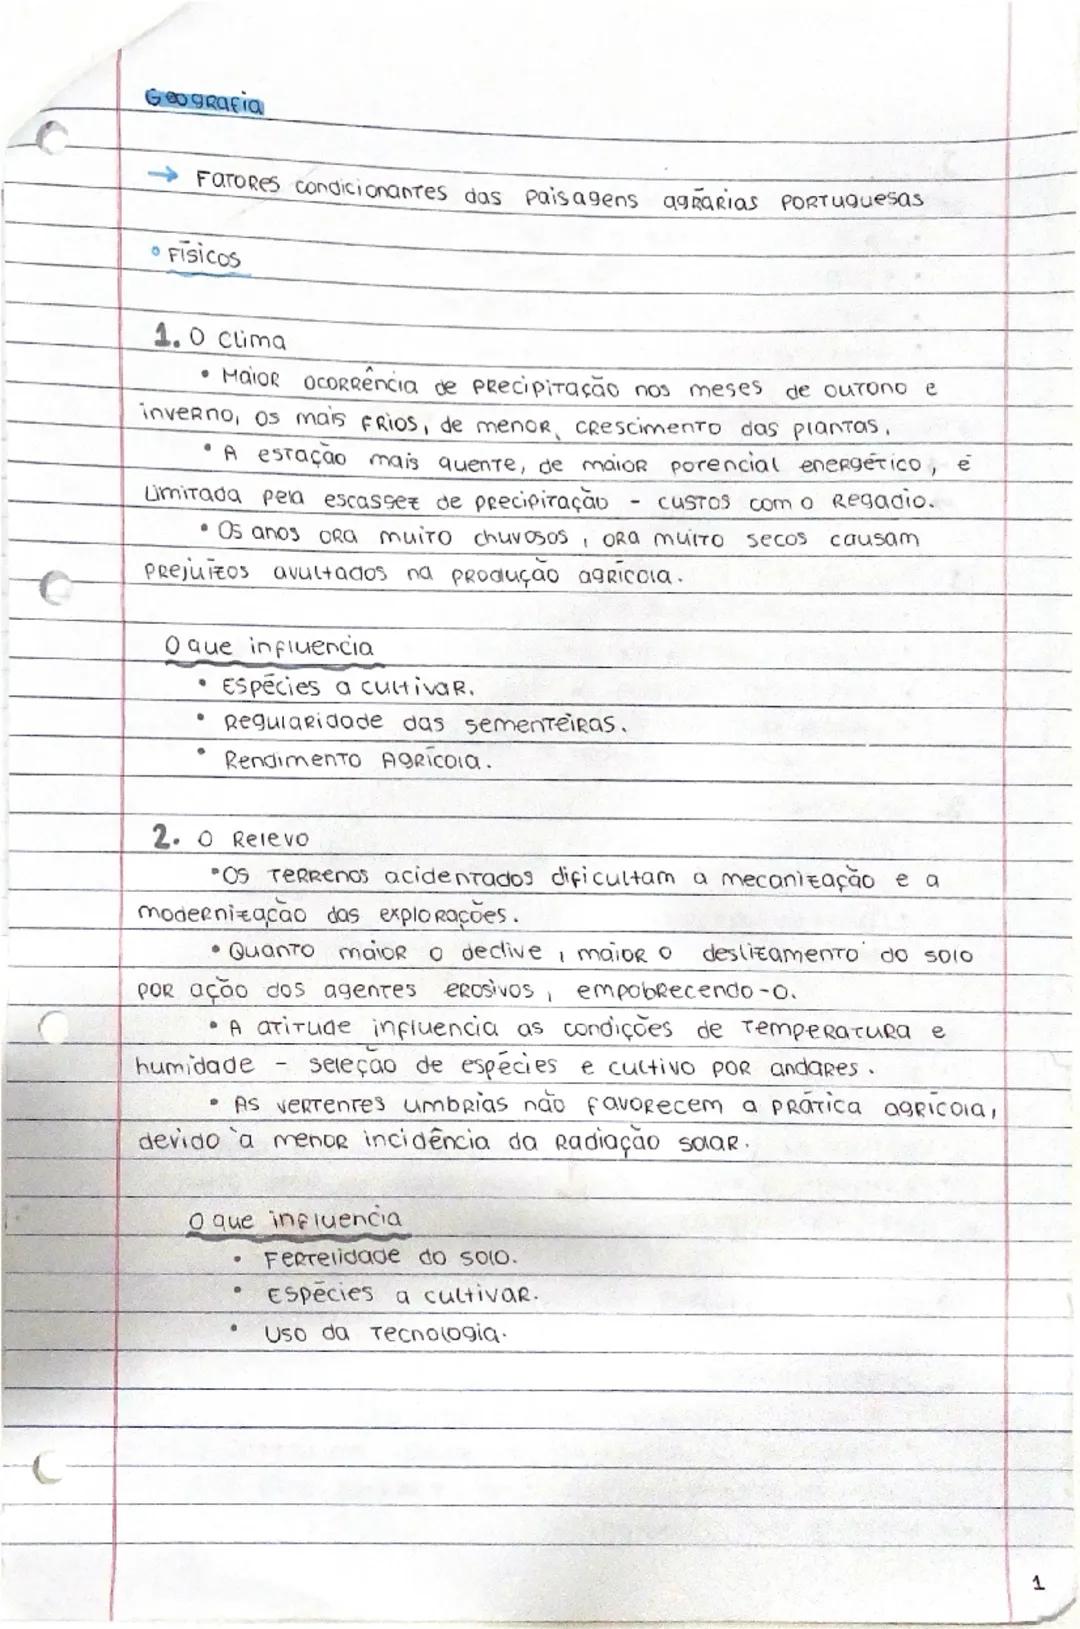 Geografia
→ Fatores condicionantes das paisagens agrárias portuguesas
• Físicos
1. O Clima
• Maior ocorrência de precipitação nos meses de outono e
inverno, os mais frios, de menor crescimento das plantas.
• A estação mais quente, de maior potencial energético, é
limitada pela escassez de precipitação - custos com o regadio.
• Os anos ora muito chuvosos, ora muito secos causam
prejuízos avultados na produção agrícola.
O que influencia
• Espécies a cultivar.
• Regularidade das sementeiras.
• Rendimento Agrícola.
2. O Relevo
• Os terrenos acidentados dificultam a mecanização e a
modernização das explorações.
• Quanto maior o declive, maior o deslizamento do solo
por ação dos agentes erosivos, empobrecendo-o.
• A atitude influencia as condições de temperatura e
humidade - seleção de espécies e cultivo por andares.
• As vertentes umbrias não favorecem a prática agrícola,
devido à menor incidência da radiação solar.
O que influencia
• Fertelidade do solo.
• Espécies a cultivar.
• Uso da tecnologia.
1